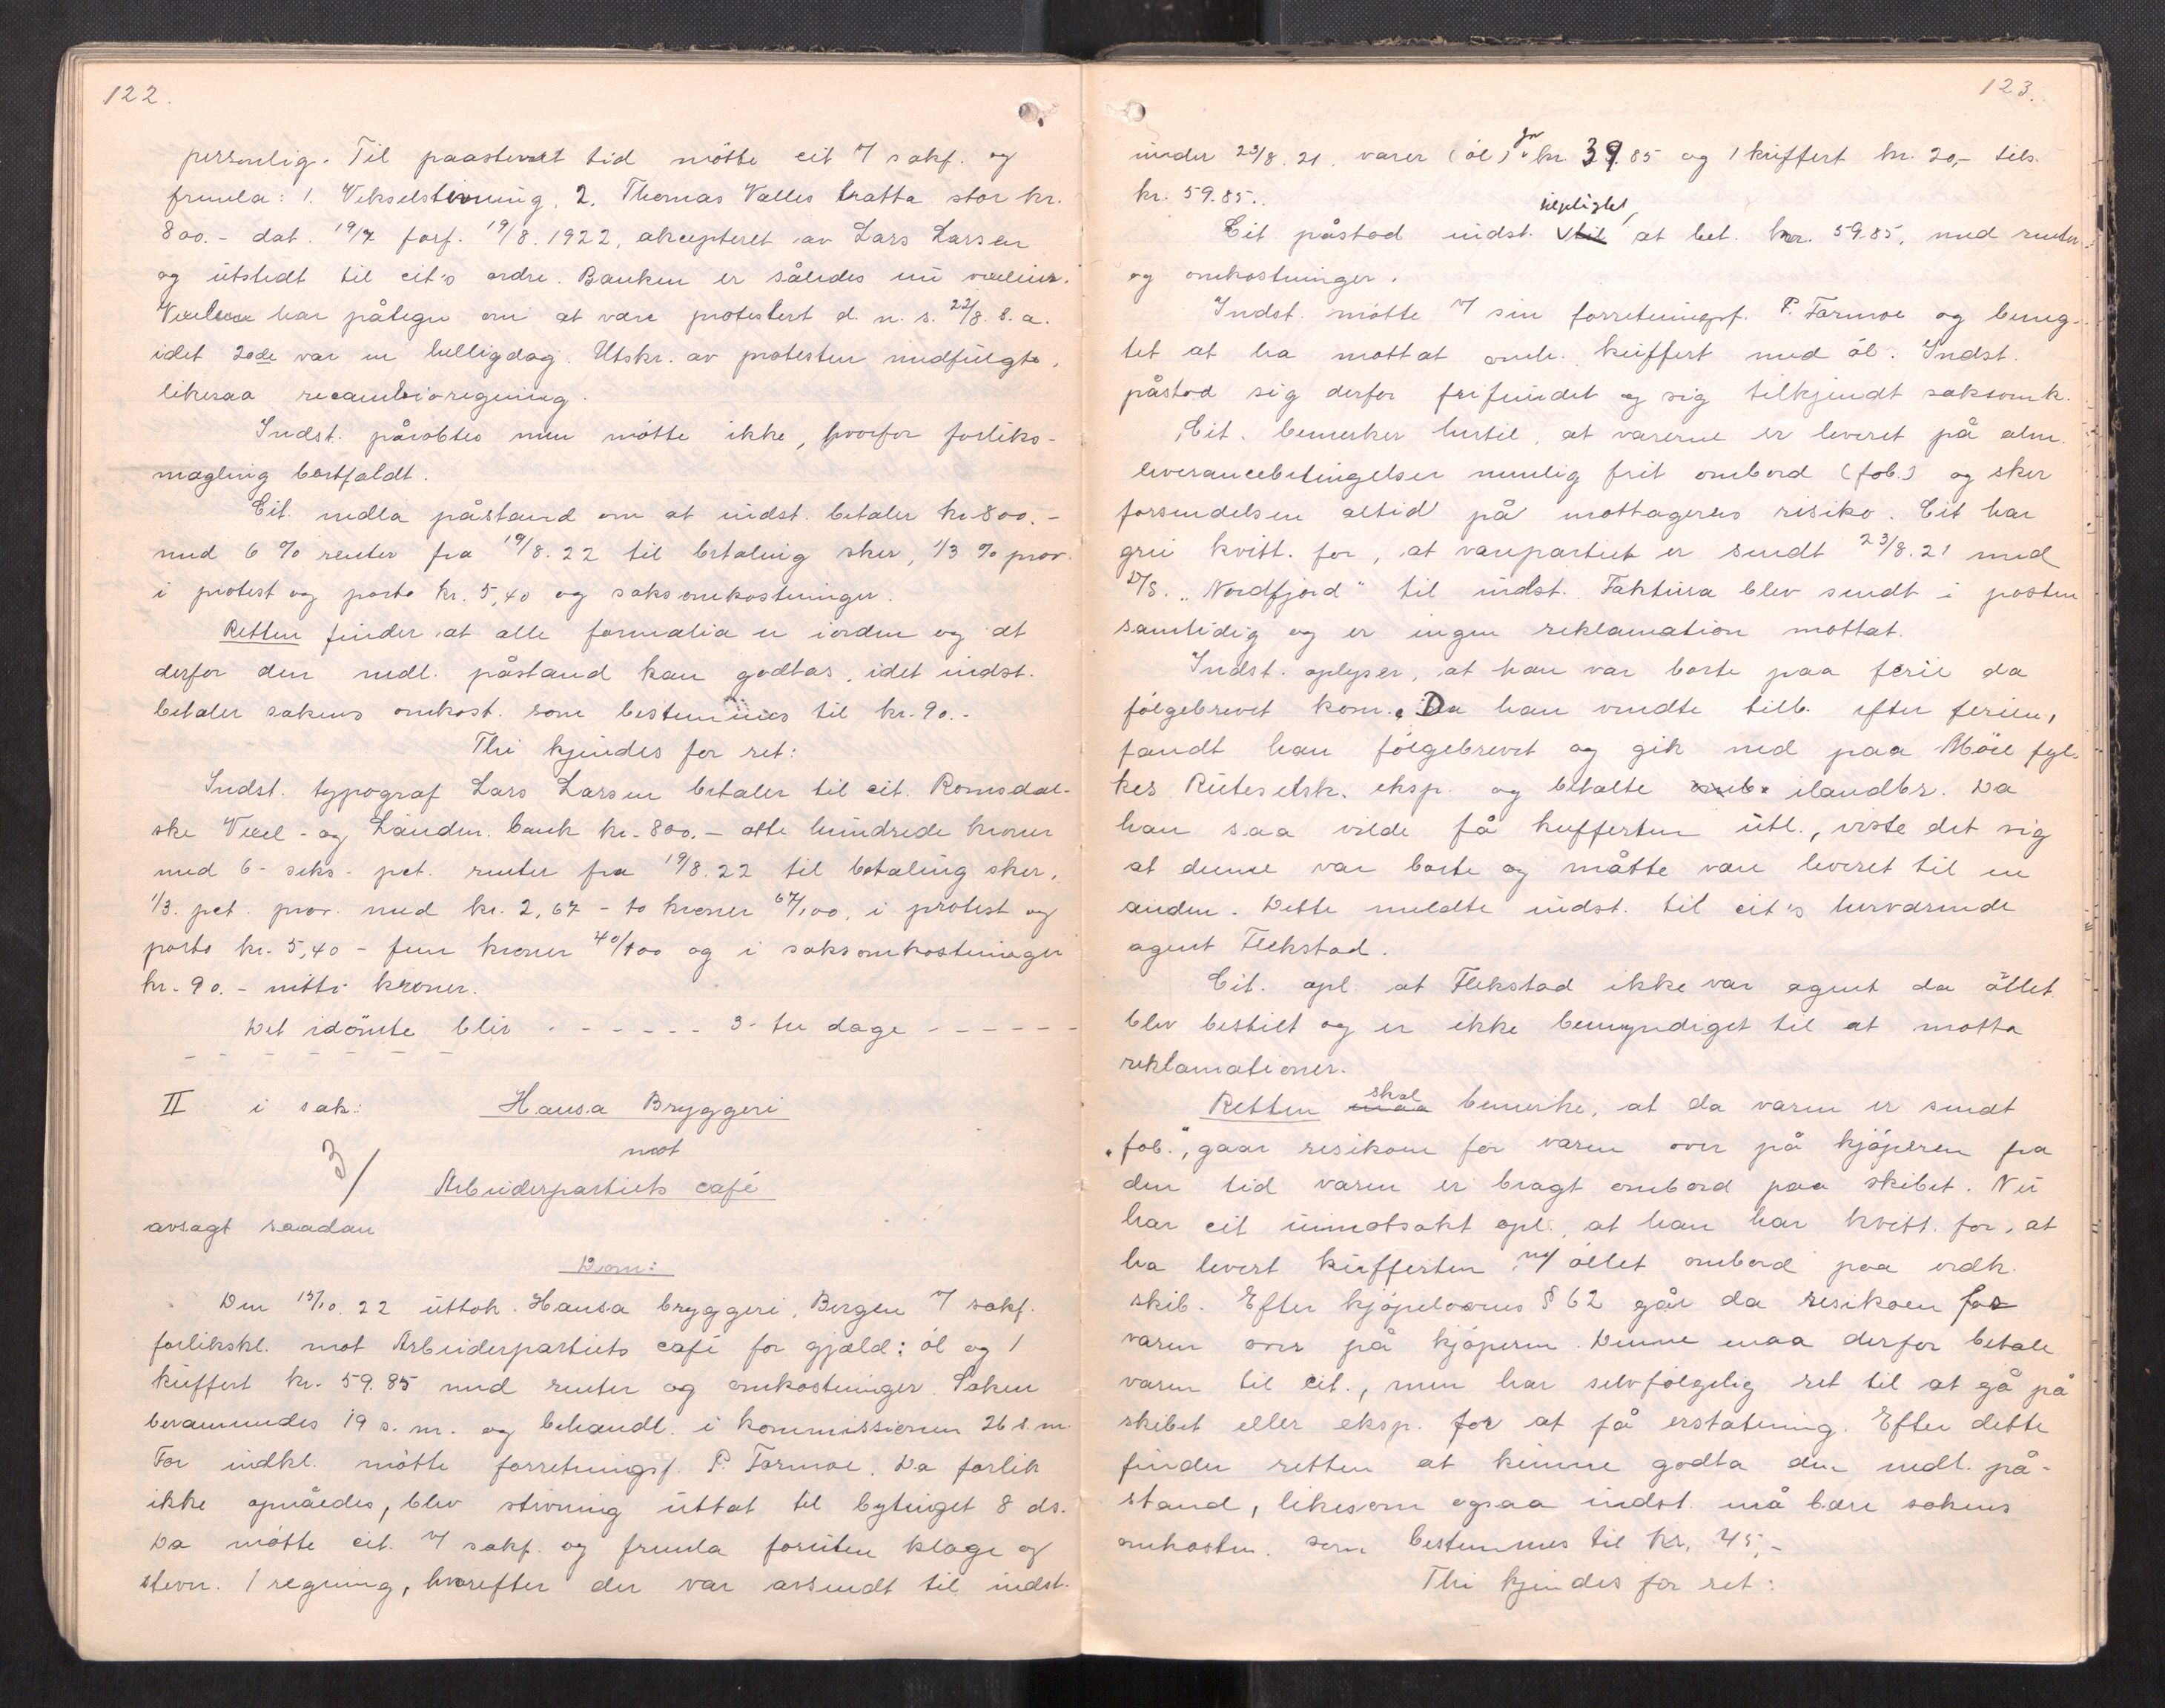 122.
personlig. Til paastevnt tid mötte cit v/ sakf. og
fremla: 1. Vekselstevning, 2. Thomas Valles tratta stor kr.
800.- dat. 19/7 forf. 19/8. 1922, aksepteret av Lars Larsen
og utstedt til cit's ordre. Banken er således nu vexeleier.
Vexelen har påtegn om at være protestert d. n. s. 22/8. s. a.
idet 20de var en helligdag. Utskr. av protesten medfulgte,
likesaa recambioregning.
Indst. påroptes men mötte ikke, hvorfor forliks-
mægling bortfaldt.
Cit. nedla påstand om at indst. betaler kr. 800.-
med 6 % renter fra 19/8. 22 til betaling sker, 1/3 % prov.
i protest og porto kr. 5,40 og saksomkostninger.
Retten finder at alle formalia er iorden og at
derfor den nedl. påstand kan godtas, idet indst.
betaler sakens omkost. som bestemmes til kr. 90.-
Thi kjendes for ret:
Indst. typograf Lars Larsen betaler til cit. Romsdal-
ske Vexel- og Landm. bank kr. 800.- otte hundrede kroner
med 6- seks- pct. renter fra 19/8. 22 til betaling sker,
1/3. pct. prov. med kr. 2,67 - to kroner 67/100, i protest og
porto kr. 5,40 - fem kroner 40/100 og i saksomkostninger
kr. 90.- nitti kroner.
Det idömte blir - - - - - - 3- tre dage - - - - - -
- - - - - - -
II i sak: Hansa Bryggeri
mot
3/ Arbeiderpartiets café
avsagt saadan
Dom:
Den 13/10. 22 uttok Hansa bryggeri, Bergen v/ sakf.
forlikskl. mot Arbeiderpartiets café for gjæld: öl og 1
kuffert kr. 59.85 med renter og omkostninger. Saken
berammedes 19 s. m. og behandl. i kommissionen 26 s. m.
For indkl. mötte forretningsf. P. Formoe. Da forlik
ikke opnåedes, blev stevning uttat til bytinget 8 ds.
Da mötte cit. v/ sakf. og fremla foruten klage og
stevn. 1 regning, hvorefter der var avsendt til indst.
123.
under 23/8. 21. varer (öl) for kr. 39.85 og 1 kuffert kr. 20,- tils.
kr. 59.85..
Cit påstod indst. til at bet. kr. 59.85, med renter
og omkostninger.
Indst. mötte v/ sin forretningsf. P. Formoe og beneg-
tet at ha mottat omh. kuffert med öl. Indst.
påstod sig derfor frifundet og sig tilkjendt saksomk.
Cit. bemerker hertil, at varerne er leveret på alm.
leverancebetingelser nemlig frit ombord (fob.) og sker
forsendelsen altid på mottageres risiko. Cit har
grei kvitt. for, at varepartiet er sendt 23/8. 21 med
D/S. „Nordfjord" til indst. Faktura blev sendt i posten
samtidig og er ingen reklamation mottat.
Indst. oplyser, at han var borte paa ferie da
fölgebrevet kom. Da han vendte tilb. efter ferien,
fandt han fölgebrevet og gik ned paa Möre fyl-
kes Ruteselsk. eksp. og betalte ilandbr. Da
han saa vilde få kufferten utl., viste det sig
at denne var borte og måtte være leveret til en
anden. Dette meldte indst. til cit's herværende
agent Flekstad.
Cit. opl. at Flekstad ikke var agent da öllet
blev bestilt og er ikke bemyndiget til at motta
reklamationer.
Retten maa skal bemerke, at da varen er sendt
„fob.", gaar risikoen for varen over på kjöperen fra
den tid varen er bragt ombord paa skibet. Nu
har cit uimotsakt opl., at han har kvitt. for, at
ha levert kufferten m/ öllet ombord paa vedk.
skib. Efter kjöpelovens § 62 går da risikoen for
varen over på kjöperen. Denne maa derfor betale
varen til cit., men har selvfölgelig ret til at gå på
skibet eller eksp. for at få erstatning. Efter dette
finder retten at kunne godta den nedl. på-
stand, likesom ogsaa indst. må bære sakens
omkostn. som bestemmes til kr. 45,-
Thi kjendes for ret: